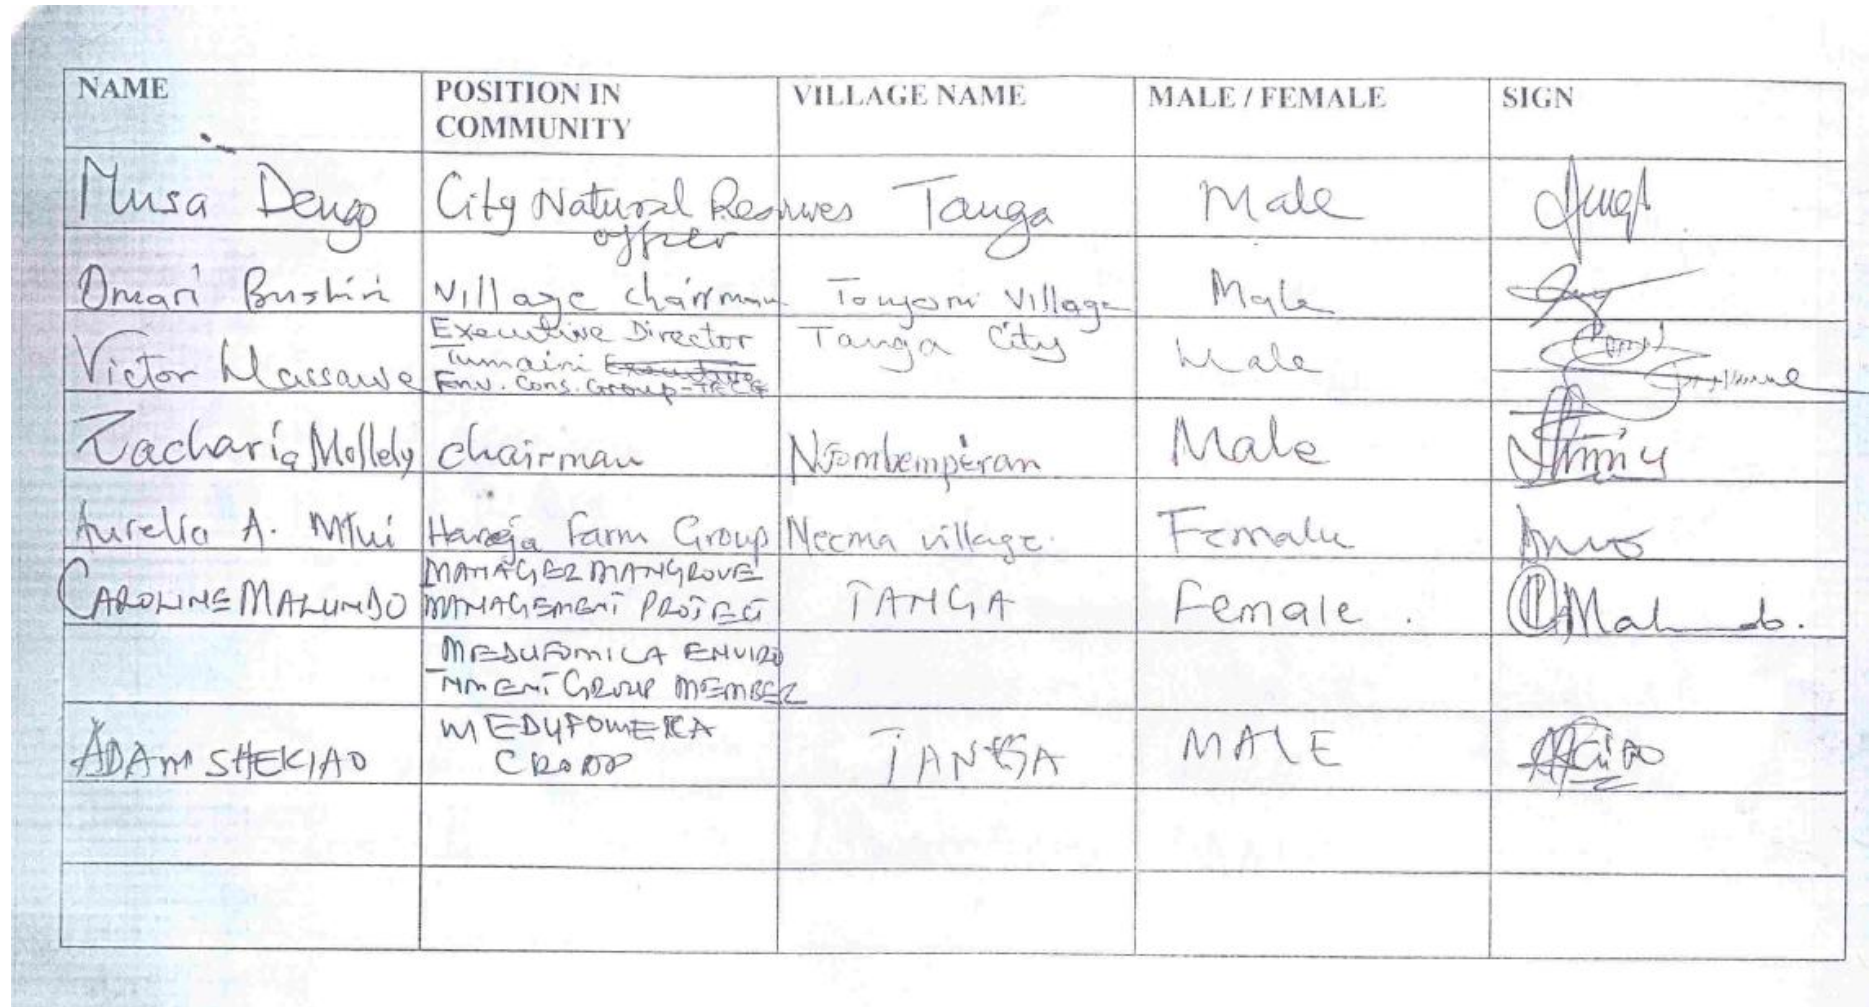 NAME POSITION IN COMMUNITY VILLAGE NAME MALE / FEMALE SIGN
Musa Dengo City Natural Resources officer Tanga Male
Omari Bushiri Village chairman Tongoni Village Male
Victor Massawe Executive Director Tumaini Env. Cons. Group - TECG Tanga City Male
Zacharia Mollely chairman Male
Aurelia A. Mtui Farm Group Neema village. Female
CAROLINE MALUNDO MANAGER MANGROVE MANAGEMENT PROJECT TANGA Female . Malundo.
MEDUFOMICA ENVIRO
NMENT GROUP MEMBER
ADAM SHEKIAO MEDUFOMEKA GROUP TANGA MALE